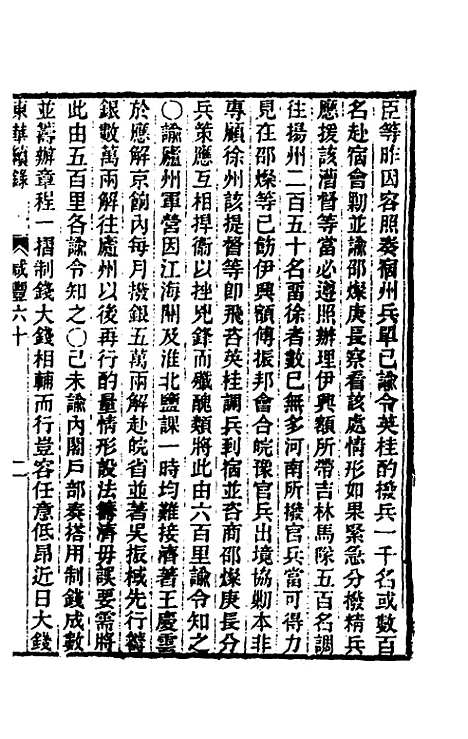 臣等昨因容照奏宿州兵單已諭令英桂酌撥兵一千名或數百
名赴宿會勦並諭邵燦庚長察看該處情形如果緊急分撥精兵
應援該漕督等當必遵照辦理伊興額所帶吉林馬隊五百名調
往揚州二百五十名畱徐者數已無多河南所撥官兵當可得力
見在邵燦等已飭伊興額傅振邦會合皖豫官兵出境協勦本非
專顧徐州該提督等卽飛咨英桂調兵到宿並咨商邵燦庚長分
兵策應互相捍衞以挫兇鋒而殲醜類將此由六百里諭令知之
〇諭廬州軍營因江海關及淮北鹽課一時均難接濟著王慶雲
於應解京餉內每月撥銀五萬兩解赴皖省並著吳振棫先行籌
銀數萬兩解往廬州以後再行酌量情形設法籌濟毋誤要需將
此由五百里各諭令知之〇己未諭內閣戶部奏搭用制錢成數
並籌辦章程一摺制錢大錢相輔而行豈容任意低昂近日大錢
東華續錄 咸豐六十 二